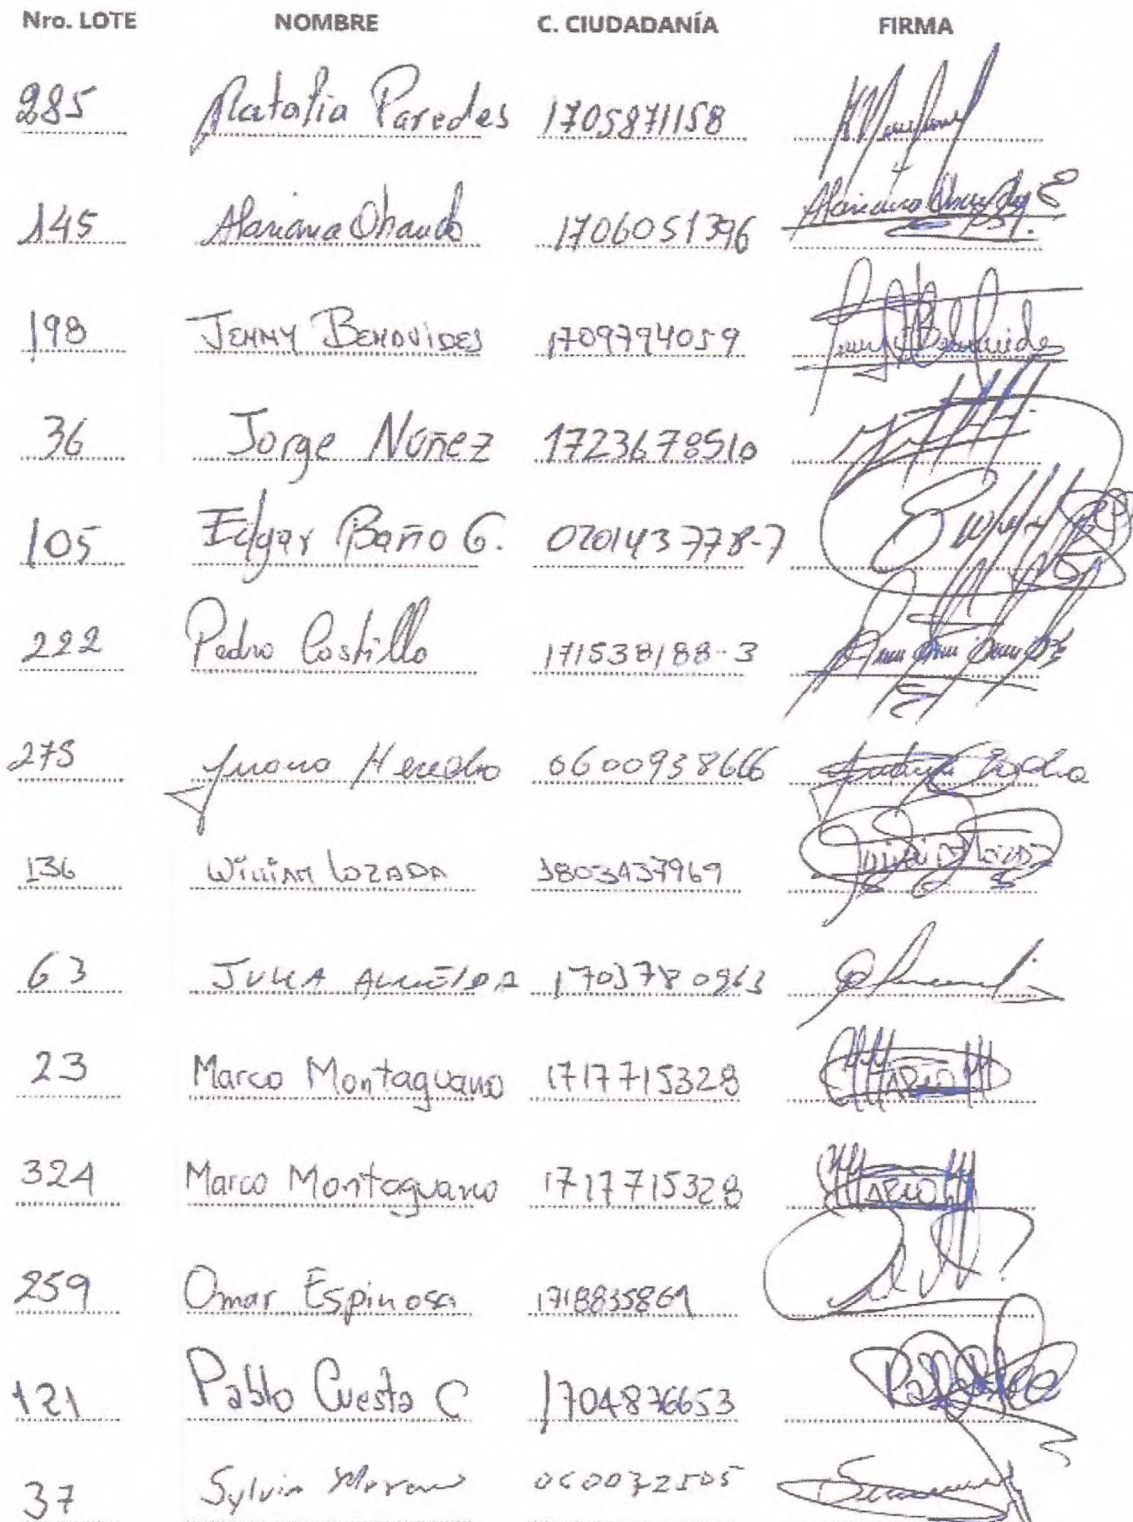 Nro. LOTE NOMBRE C. CIUDADANÍA FIRMA
285 Natalia Paredes 1705871158
145 Mariana Obando 1706051396
198 JENNY BENAVIDES 1709794059
36 Jorge Núñez 1723678510
105 Edgar Baño G. 020143778-7
222 Pedro Castillo 171538188-3
275 Heredia 0600938666
136 William LOZADA 1803437969
63 JULIA ALMEIDA 1703780963
23 Marco Montaguano 1717715328
324 Marco Montaguano 1717715328
259 Omar Espinosa 1718835861
121 Pablo Cuesta C 1704876653
37 Sylvia Moreno 0600372505